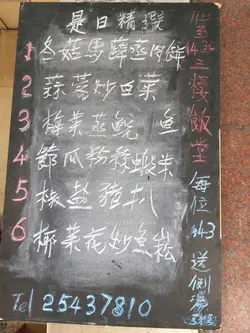 是日精選
1 冬菇馬蹄蒸肉餅
2 蒜蓉炒白菜
3 梅菜蒸鯇魚
4 節瓜粉絲蝦米
5 椒鹽豬扒
6 椰菜花炒魚崧
三樓飯堂
每位 $43 送例湯
Tel 25437810